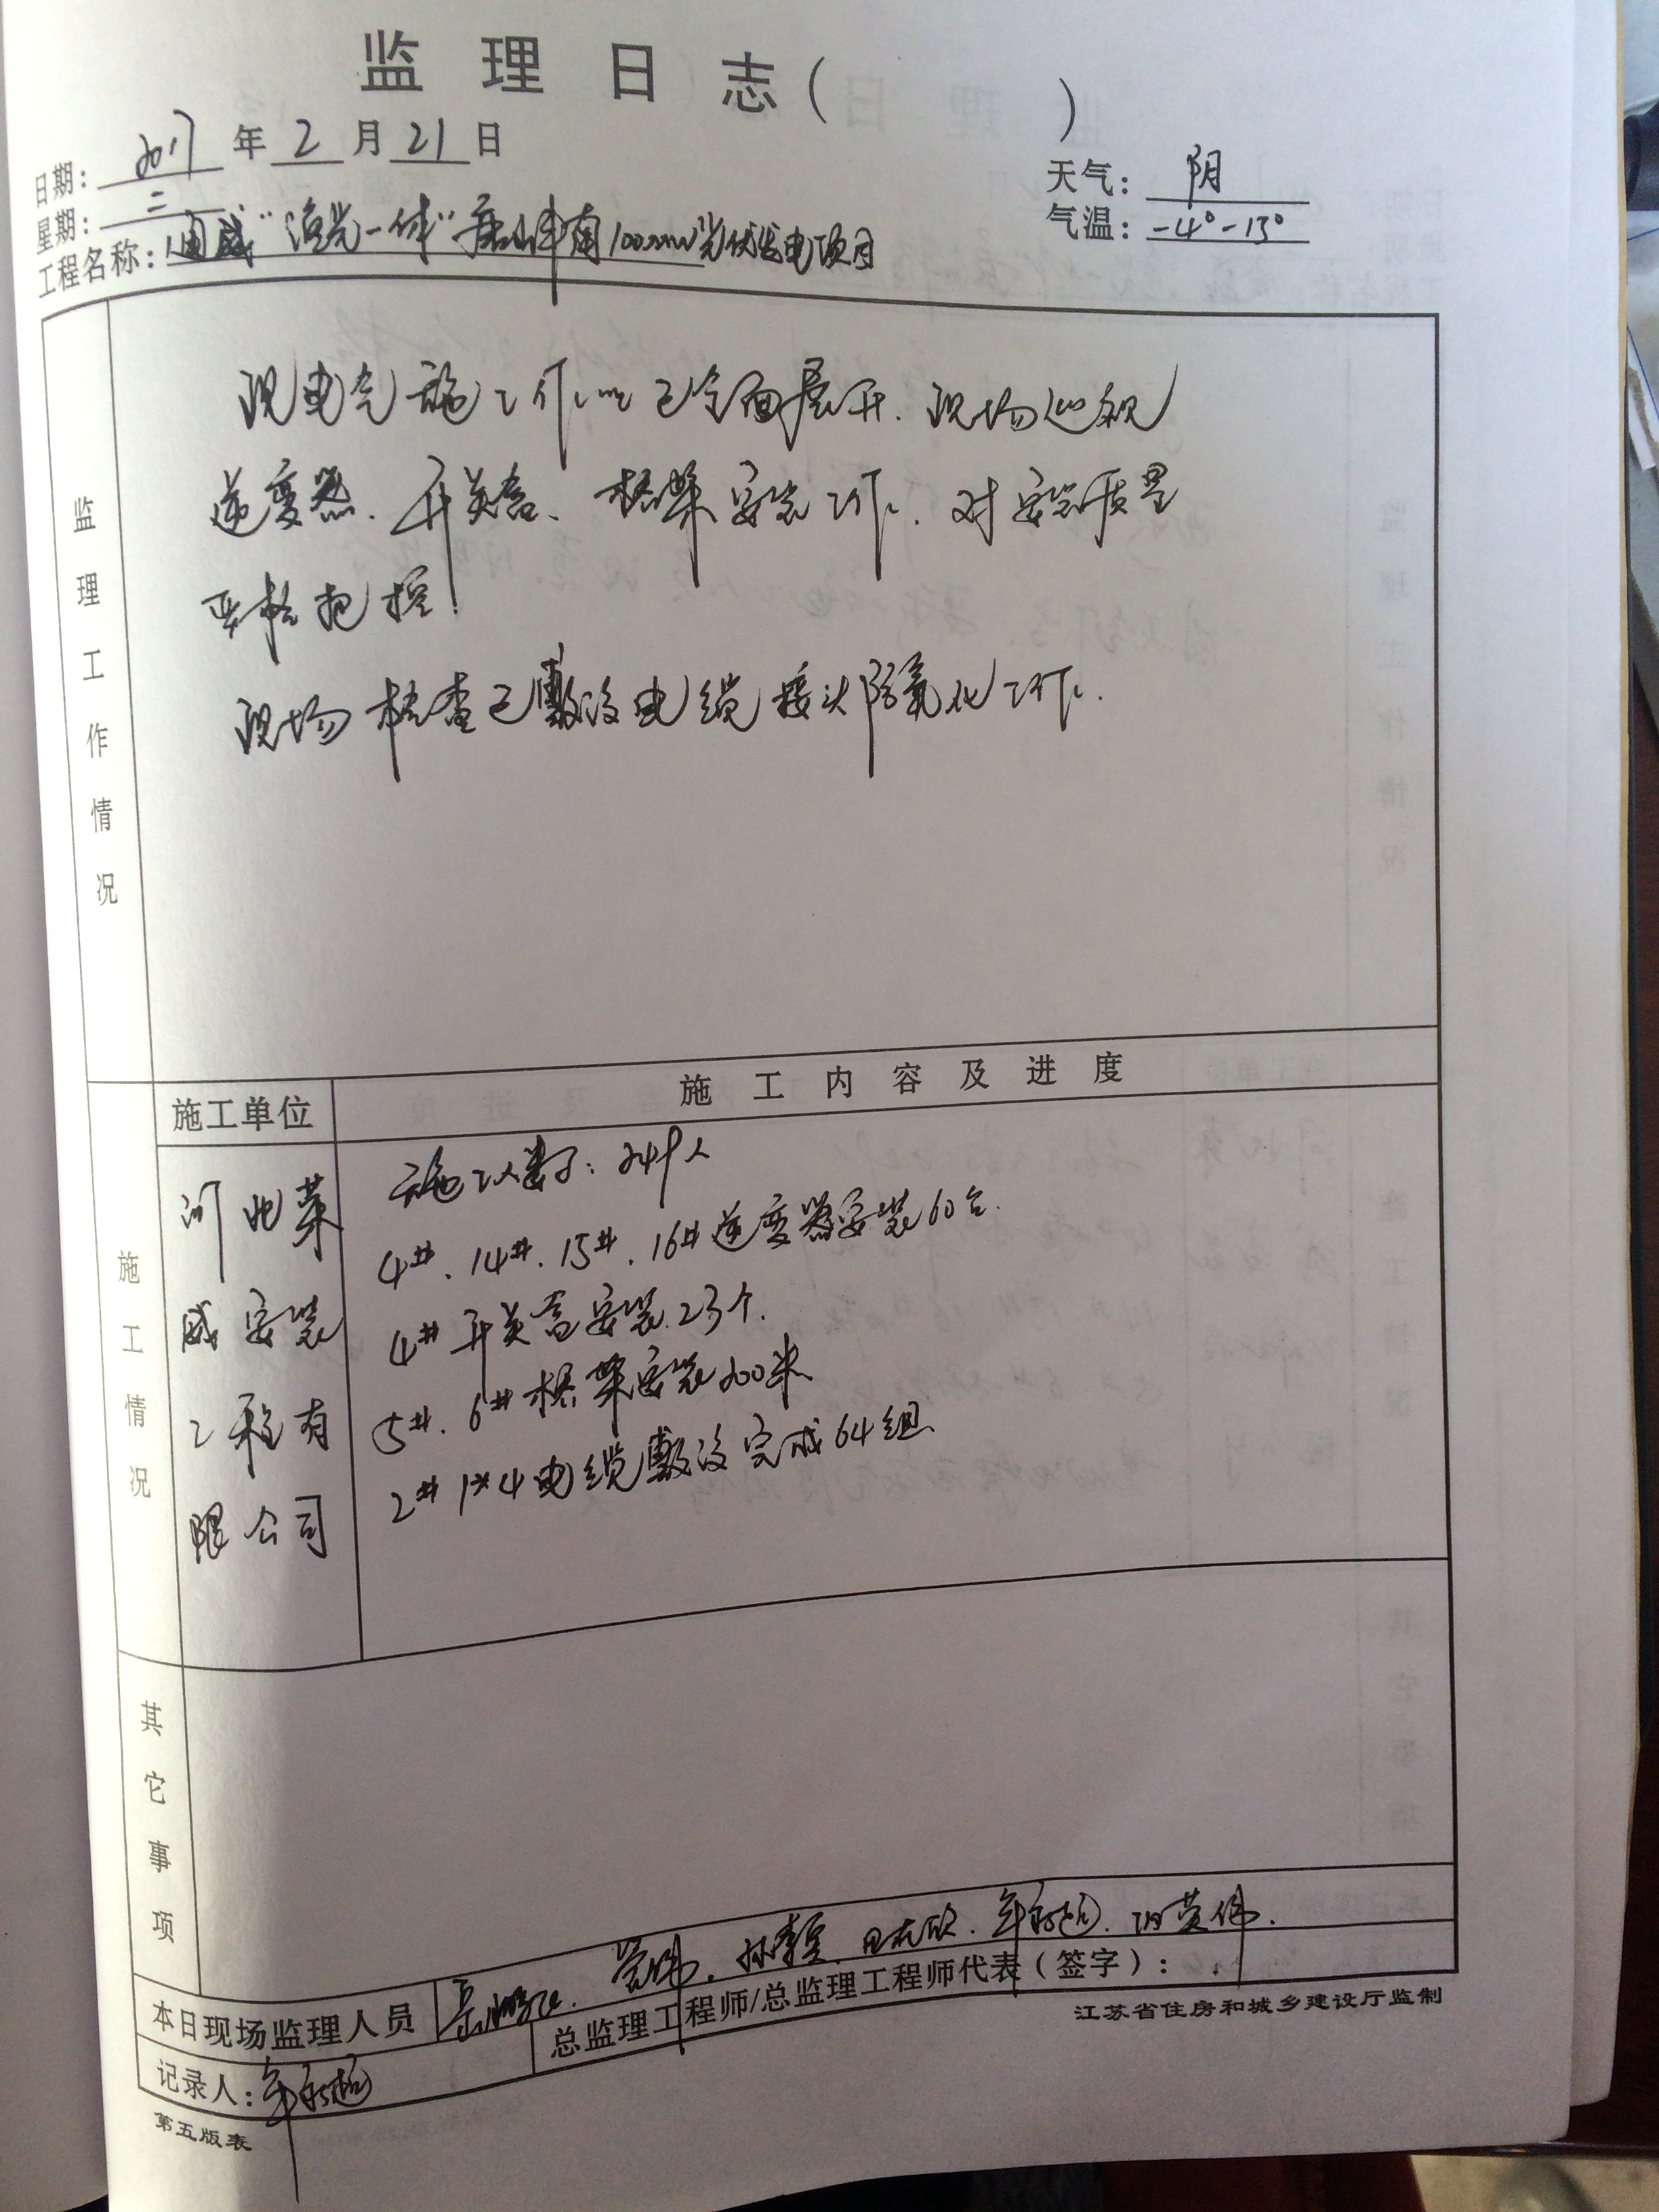 监理日志（ ）
日期：2017年2月21日
天气：阴
星期：二
气温：-4°-13°
工程名称：通威"渔光一体"唐山丰南100MW光伏发电项目
监理工作情况
现电气施工作业已全面展开．现场巡视
逆变器、开关盒、桥架安装工作．对安装质量
严格把控！
现场检查已敷设电缆接头防氧化工作．
施工情况
施工单位
施工内容及进度
河北莱
威安装
工程有
限公司
施工人数：24个人
4#、14#、15#、16#逆变器安装60台．
4#开关盒安装23个．
5#、6#桥架安装200米
2# 1*4电缆敷设完成64组
其它事项
本日现场监理人员
记录人：
总监理工程师/总监理工程师代表（签字）：
江苏省住房和城乡建设厅监制
第五版表